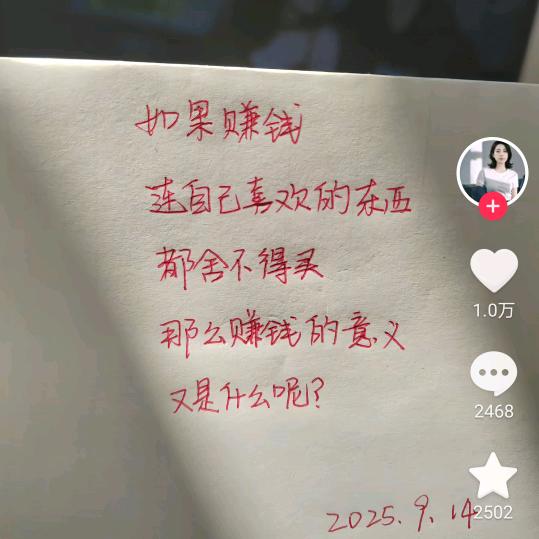 如果赚钱
连自己喜欢的东西
都舍不得买
那么赚钱的意义
又是什么呢?
2025.9.14
1.0万
2468
2502